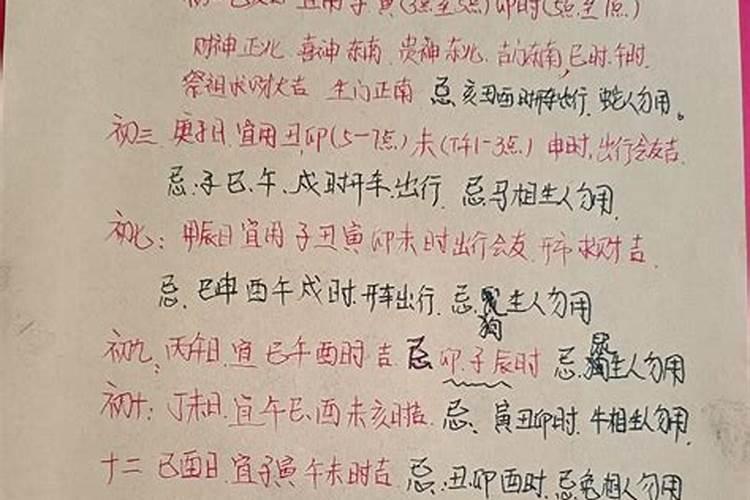 宜用子寅(3点至5点)卯时(5点至7点)
财神正北 喜神东南 贵神东北 吉门东南,巳时.午时.
祭祖求财大吉 生门正南 忌亥丑酉时开车出行 蛇人勿用。
初三 庚子日.宜用丑.卯(5-7点)未(下午1-3点)申时,出行会友吉
忌:子巳、午、戌时开车.出行 忌马相生人勿用
初七: 甲辰日宜用子丑寅卯未时出行会友 开市求财吉
忌.巳申酉午戌时.开车出行.忌狗生人勿用
初九:丙午日.宜巳午酉时吉 忌卯.子辰时 忌生人勿用
初十: 丁未日.宜午巳.酉未亥时吉 忌、寅丑卯时.牛相生人勿用
十二 己酉日.宜子寅午未时吉 忌:丑.卯酉时.忌兔相人勿用